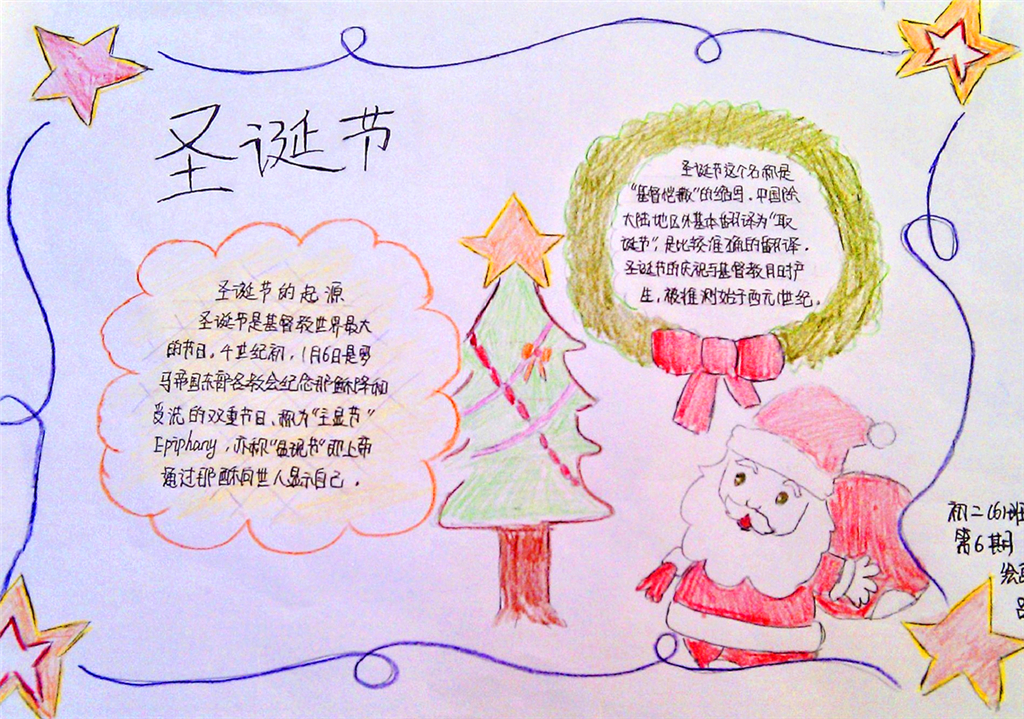 圣诞节
圣诞节的起源
圣诞节是基督教世界最大
的节日。4世纪初，1月6日是罗
马帝国东部各教会纪念耶稣降和
受洗的双重节日、称为“主显节”
Epiphany，亦称“显现节”即上帝
通过耶稣向世人显示自己。
圣诞节这个名称是
“基督弥撒”的缩写。中国除
大陆地区外基本翻译为“耶
诞节”，是比较准确的翻译。
圣诞节的庆祝与基督教同时产
生，被推测始于西元1世纪。
初二(6)班
第6期
绘画